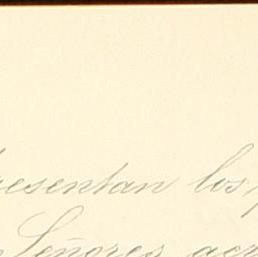 resentan los
Señores acr